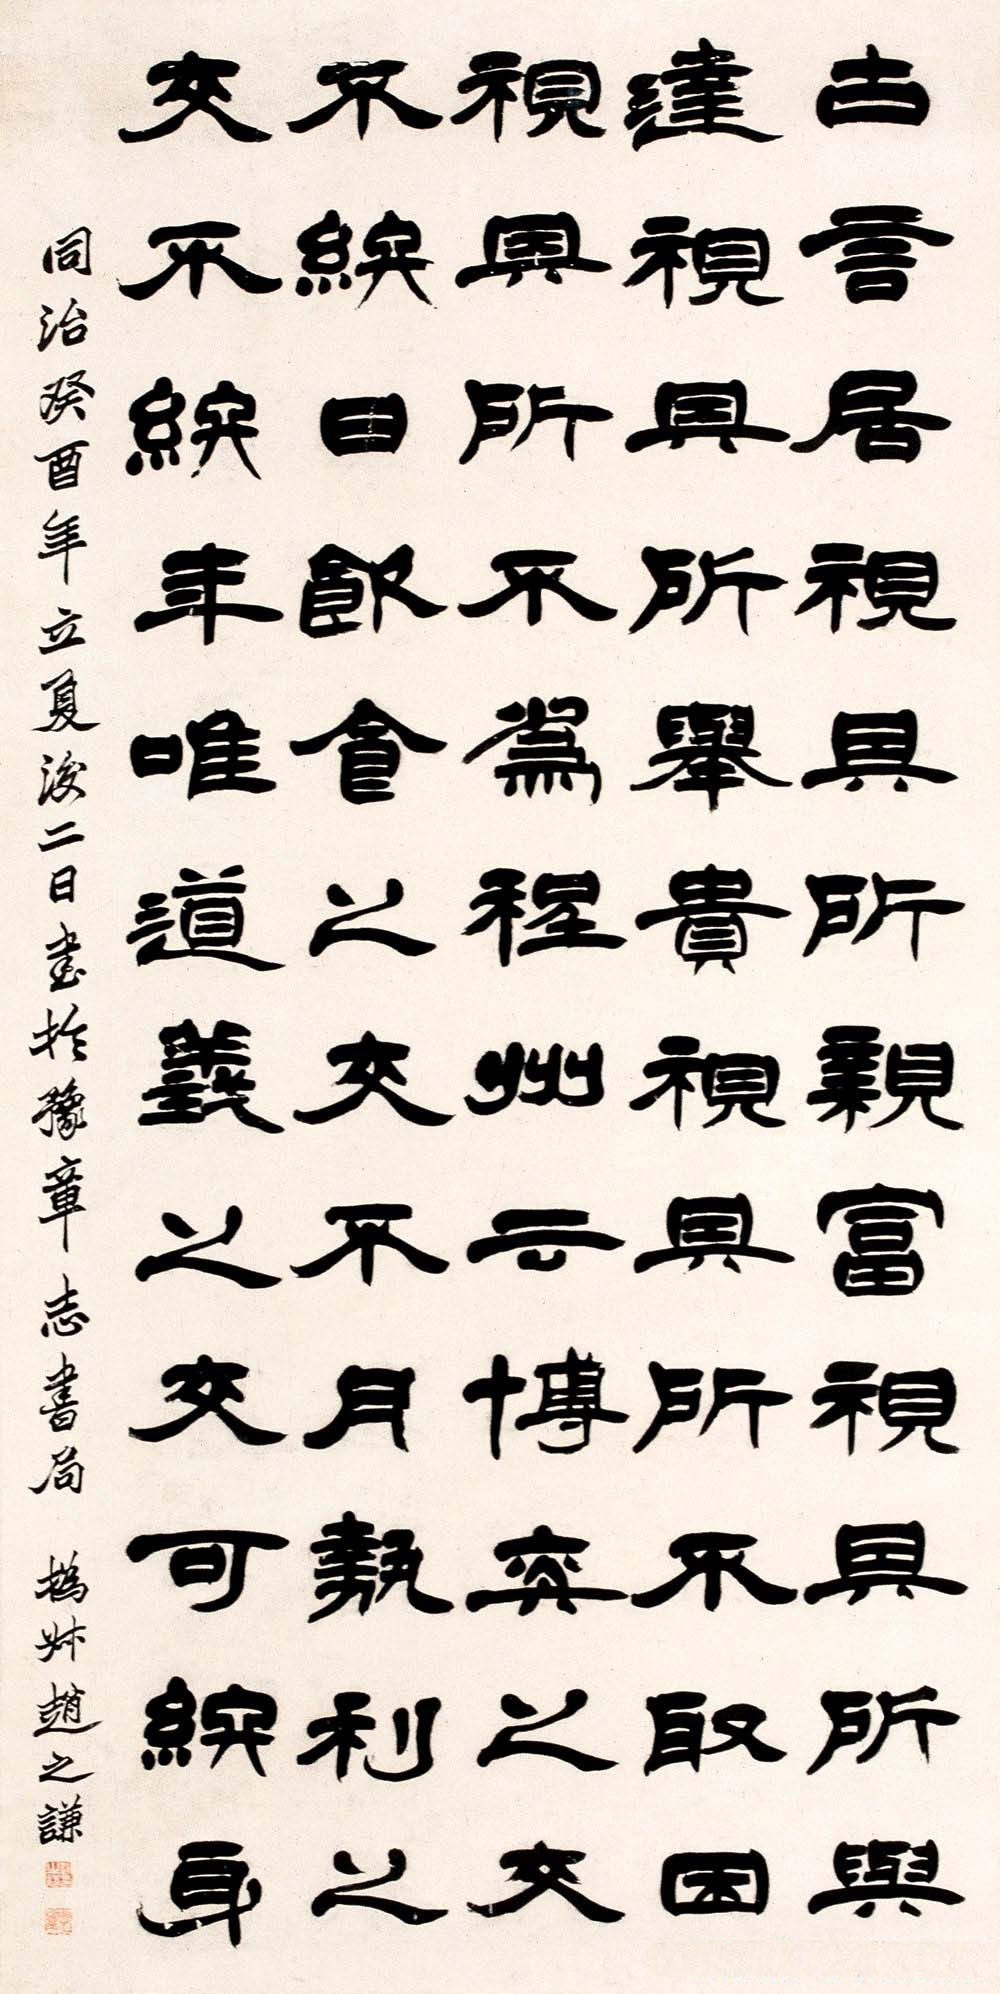 古言居視其所親富視其所與
達視其所舉貴視其所不取困
視其所不為程州云博弈之交
不終日飲食之交不月埶利之
交不終年唯道義之交可終身
同治癸酉年立夏後二日書於豫章志書局 撝叔趙之謙